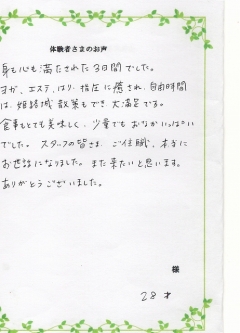 体験者さまのお声
身も心も満たされた3日間でした。
ヨガ、エステ、はり・指圧に癒され、自由時間
は、姫路城散策もでき、大満足です。
食事もとても美味しく、少量でもおなかいっぱい
でした。スタッフの皆さま、ご住職、本当に
お世話になりました。また来たいと思います。
ありがとうございました。
様
28才